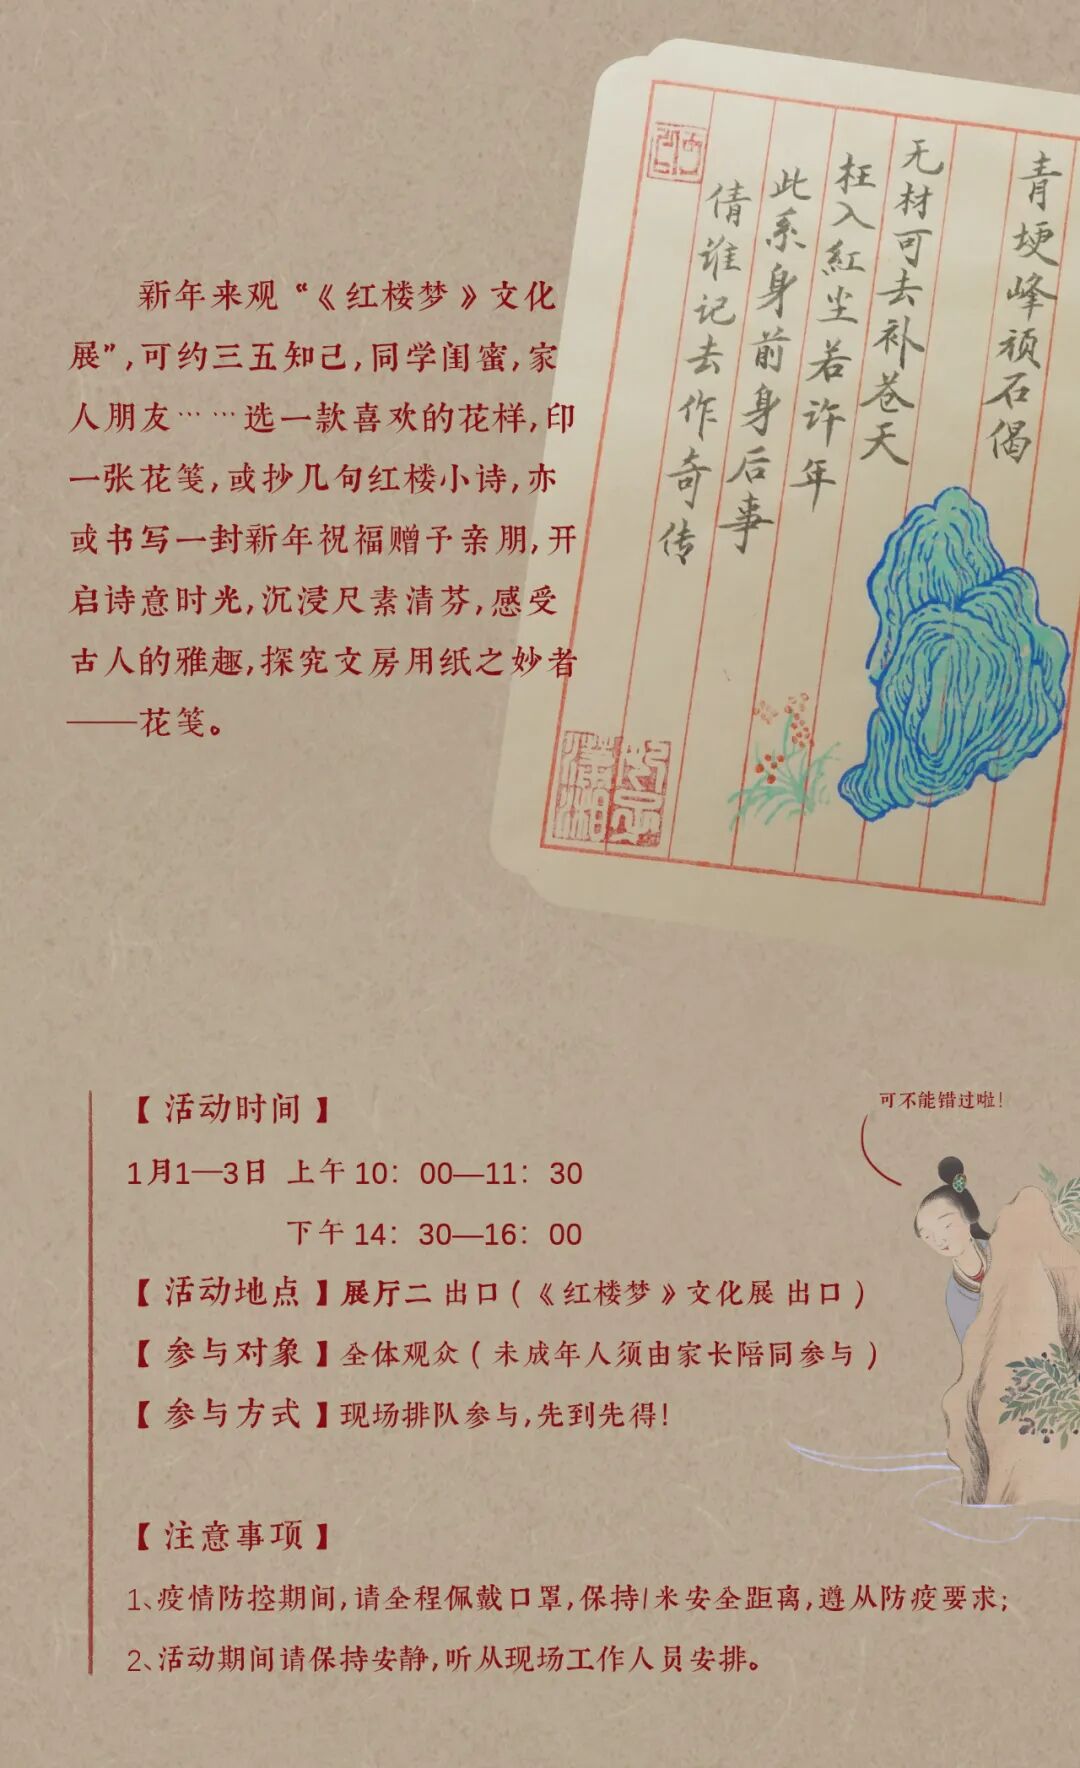 新年来观“《红楼梦》文化
展”,可约三五知己,同学闺蜜,家
人朋友……选一款喜欢的花样,印
一张花笺,或抄几句红楼小诗,亦
或书写一封新年祝福赠予亲朋,开
启诗意时光,沉浸尺素清芬,感受
古人的雅趣,探究文房用纸之妙者
——花笺。
青埂峰顽石偈
无材可去补苍天
枉入紅尘若许年
此系身前身后事
倩谁记去作奇传
【活动时间】
1月1—3日 上午10：00—11：30
下午14：30—16：00
【活动地点】展厅二 出口(《红楼梦》文化展 出口)
【参与对象】全体观众(未成年人须由家长陪同参与)
【参与方式】现场排队参与,先到先得!
可不能错过啦!
【注意事项】
1、疫情防控期间,请全程佩戴口罩,保持1米安全距离,遵从防疫要求;
2、活动期间请保持安静,听从现场工作人员安排。